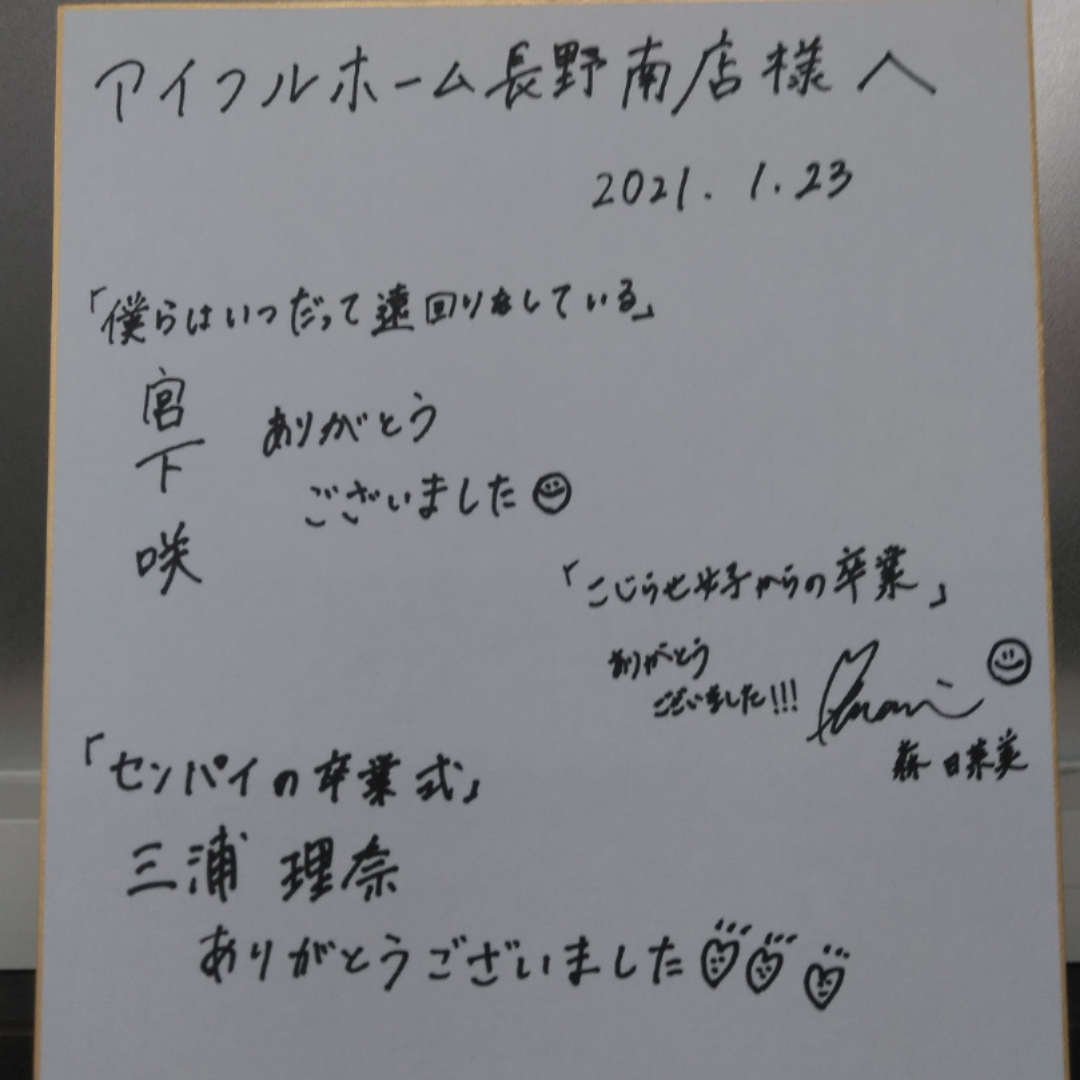 アイフルホーム長野南店様へ
2021. 1. 23
「僕らはいつだって遠回りをしている」
宮下咲
ありがとう
ございました
「こじらせ女子からの卒業」
ありがとう
ございました!!!
森 日菜美
「センパイの卒業式」
三浦 理奈
ありがとうございました